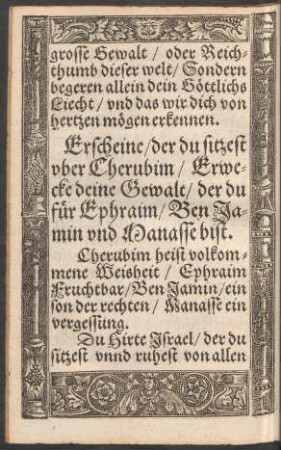 grosse Gewalt / oder Reich-
thumb dieser welt / Sondern
begeren allein dein Göttlichs
Liecht / vnd das wir dich von
hertzen mögen erkennen.
Erscheine / der du sitzest
vber Cherubim / Erwe-
cke deine Gewalt / der du
für Ephraim / Ben Ja-
min vnd Manasse bist.
Cherubim heist volkom-
mene Weisheit / Ephraim
Fruchtbar / Ben Jamin / ein
son der rechten / Manasse ein
vergessung.
Du Hirte Jsrael / der du
sitzest vnnd ruhest von allen